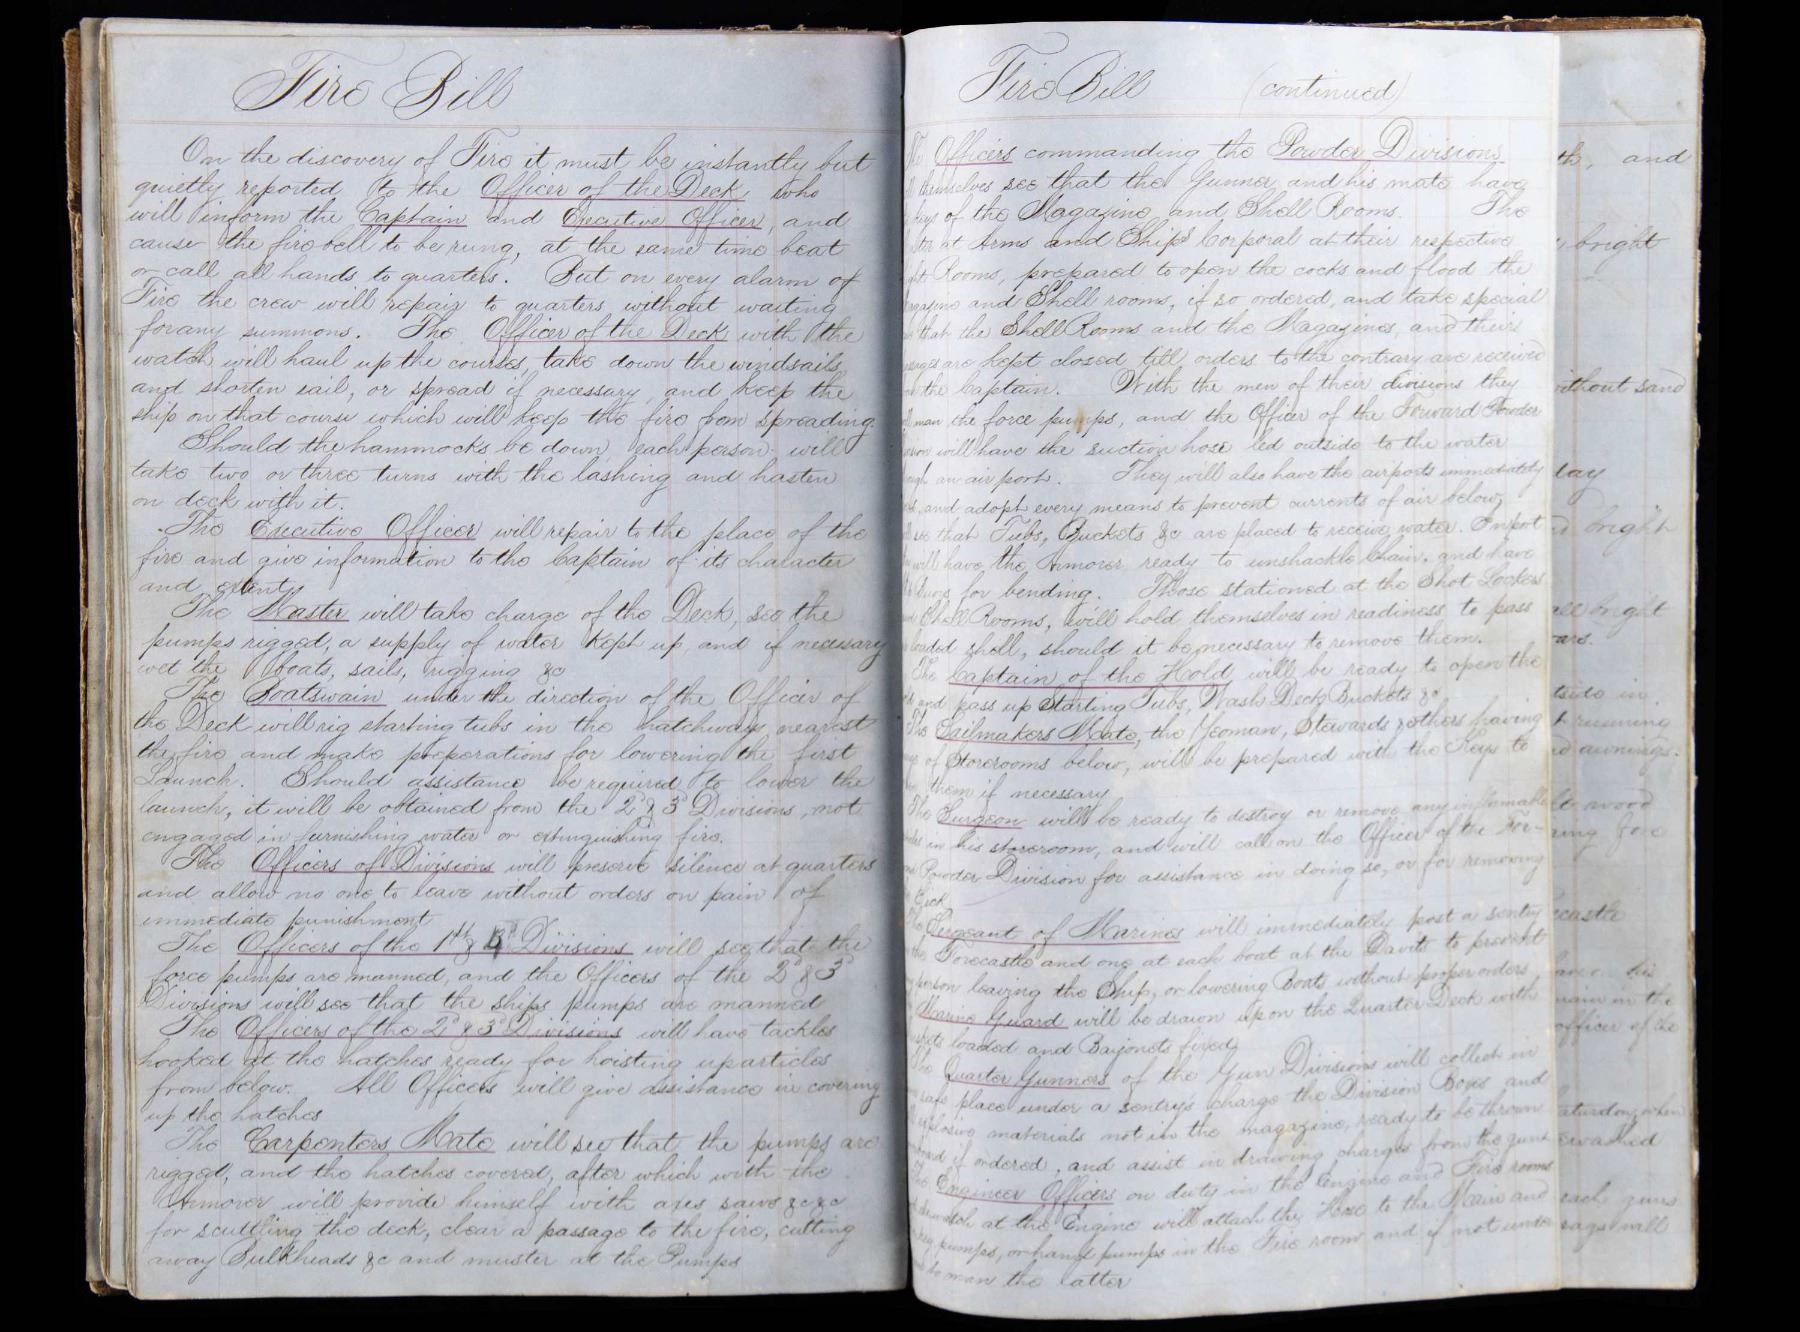 Fire Bill
On the discovery of Fire it must be instantly but
quietly reported to the Officer of the Deck, who
will inform the Captain and Executive Officer, and
cause the fire bell to be rung, at the same time beat
or call all hands to quarters. But on every alarm of
Fire the crew will repair to quarters without waiting
for any summons. The Officer of the Deck with the
watch will haul up the courses, take down the windsails,
and shorten sail, or spread if necessary, and keep the
ship on that course which will keep the fire from spreading.
Should the hammocks be down, each person will
take two or three turns with the lashing and hasten
on deck with it.
The Executive Officer will repair to the place of the
fire and give information to the Captain of its character
and extent
The Master will take charge of the Deck, see the
pumps rigged, a supply of water kept up, and if necessary
wet the boats, sails, rigging &c
The Boatswain under the direction of the Officer of
the Deck will rig starting tubs in the hatchway nearest
the fire and make preperations for lowering the first
Launch. Should assistance be required to lower the
launch, it will be obtained from the 2d & 3d Divisions, not
engaged in furnishing water or extinguishing fire.
The Officers of Divisions will preserve silence at quarters
and allow no one to leave without orders on pain of
immediate punishment
The Officers of the 1st & 4th Divisions will see that the
force pumps are manned, and the Officers of the 2d & 3d
Divisions will see that the ships pumps are manned
The Officers of the 2d & 3d Divisions will have tackles
hooked at the hatches ready for hoisting up articles
from below. All Officers will give assistance in covering
up the hatches
The Carpenters Mate will see that the pumps are
rigged, and the hatches covered, after which with the
Armorer will provide himself with axes saws &c &c
for scuttling the deck, clear a passage to the fire, cutting
away Bulkheads &c and muster at the Pumps
Fire Bill (continued)
The Officers commanding the Powder Divisions
themselves see that the Gunner and his mate have
keys of the Magazine and Shell Rooms. The
at Arms and Ships Corporal at their respective
Rooms, prepared to open the cocks and flood the
and Shell rooms, if so ordered, and take special
that the Shell Rooms and the Magazines, and their
are kept closed till orders to the contrary are received
the Captain. With the men of their divisions they
man the force pumps, and the Officer of the Forward Powder
will have the suction hose led outside to the water
an air port. They will also have the airports immediately
and adopt every means to prevent currents of air below,
see that Tubs, Buckets &c are placed to receive water. In port
will have the Armorer ready to unshackle Chain, and have
for bending. Those stationed at the Shot Lockers
Shell Rooms, will hold themselves in readiness to pass
loaded shell, should it be necessary to remove them.
The Captain of the Hold will be ready to open the
and pass up Starting Tubs, Wash Deck Buckets &c
The Sailmakers Mate, the Yeoman, Stewards & others having
of Storerooms below, will be prepared with the Keys to
them if necessary
The Surgeon will be ready to destroy or remove any inflamable
in his storeroom, and will call on the Officer of the For-
Powder Division for assistance in doing so, or for removing
Sick
The Sergeant of Marines will immediately post a sentry
the Forecastle and one at each boat at the Davits to prevent
person leaving the Ship, or lowering Boats without proper orders
Marine Guard will be drawn up on the Quarter Deck with
loaded and Baijonets fixed
The Quarter Gunners of the Gun Divisions will collect in
safe place under a sentry's charge the Division Boxes and
explosive materials not in the magazine, ready to be thrown
if ordered, and assist in drawing charges from the guns
The Engineer Officers on duty in the Engine and Fire rooms
at the Engine will attach the Hose to the Main and
pumps, or hand pumps in the Fire room and if not under
man the latter
and
bright
without sand
day
bright
all bright
side in
running
awnings.
wood
castle
his
main in the
officer of the
Saturday when
each guns